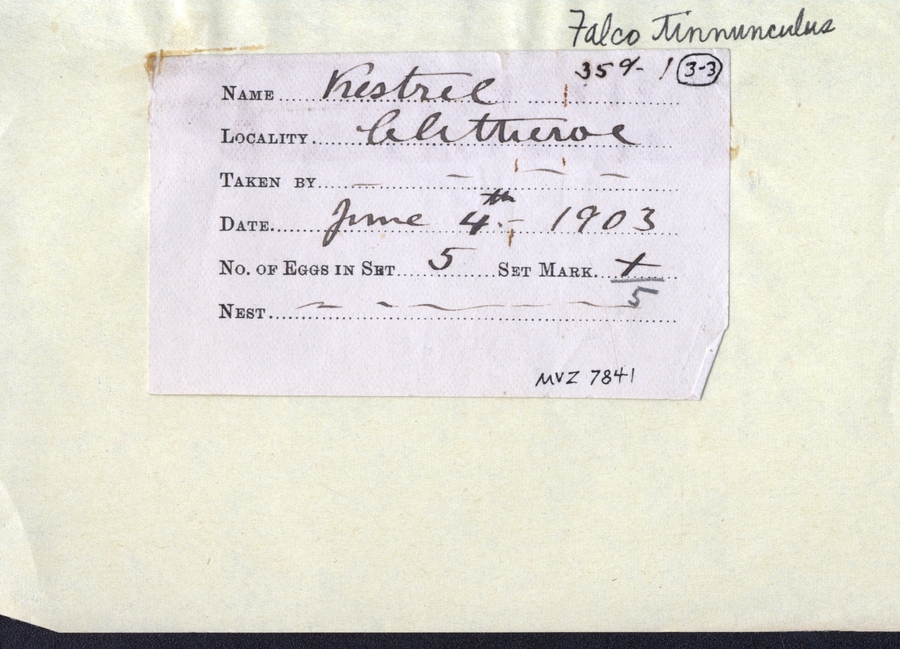 Falco tinnunculus
359- 1 3-3
NAME Kestrel
LOCALITY Clitheroe
TAKEN BY
DATE June 4th - 1903
NO. OF EGGS IN SET 5 SET MARK X
5
NEST
MVZ 7841